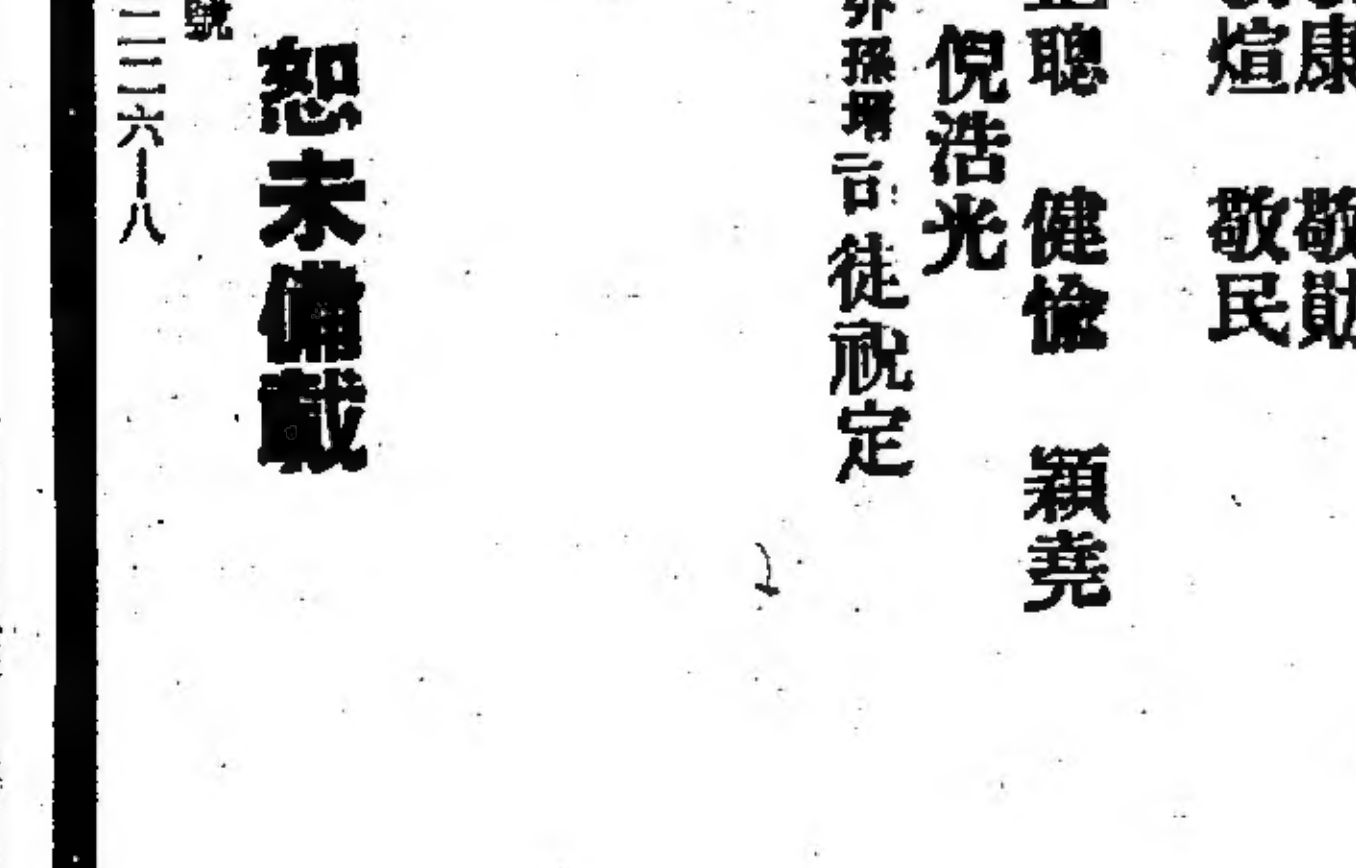 康 敬
煊 敬民
聰 健愉 穎堯
倪浩光
外孫壻 徒祝定
恕未備載
號
六—八